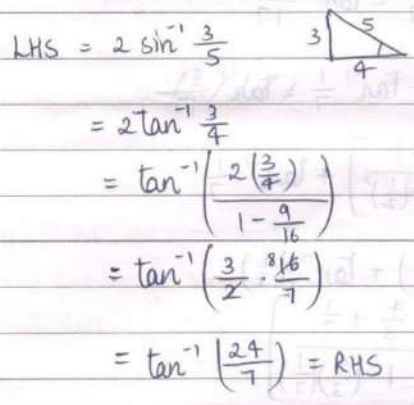 LHS = 2 sin⁻¹ 3/5
3 5 4
= 2 tan⁻¹ 3/4
= tan⁻¹ ( 2(3/4) / (1 - 9/16) )
= tan⁻¹ ( 3/2 · 8 16/7 )
= tan⁻¹ ( 24/7 ) = RHS